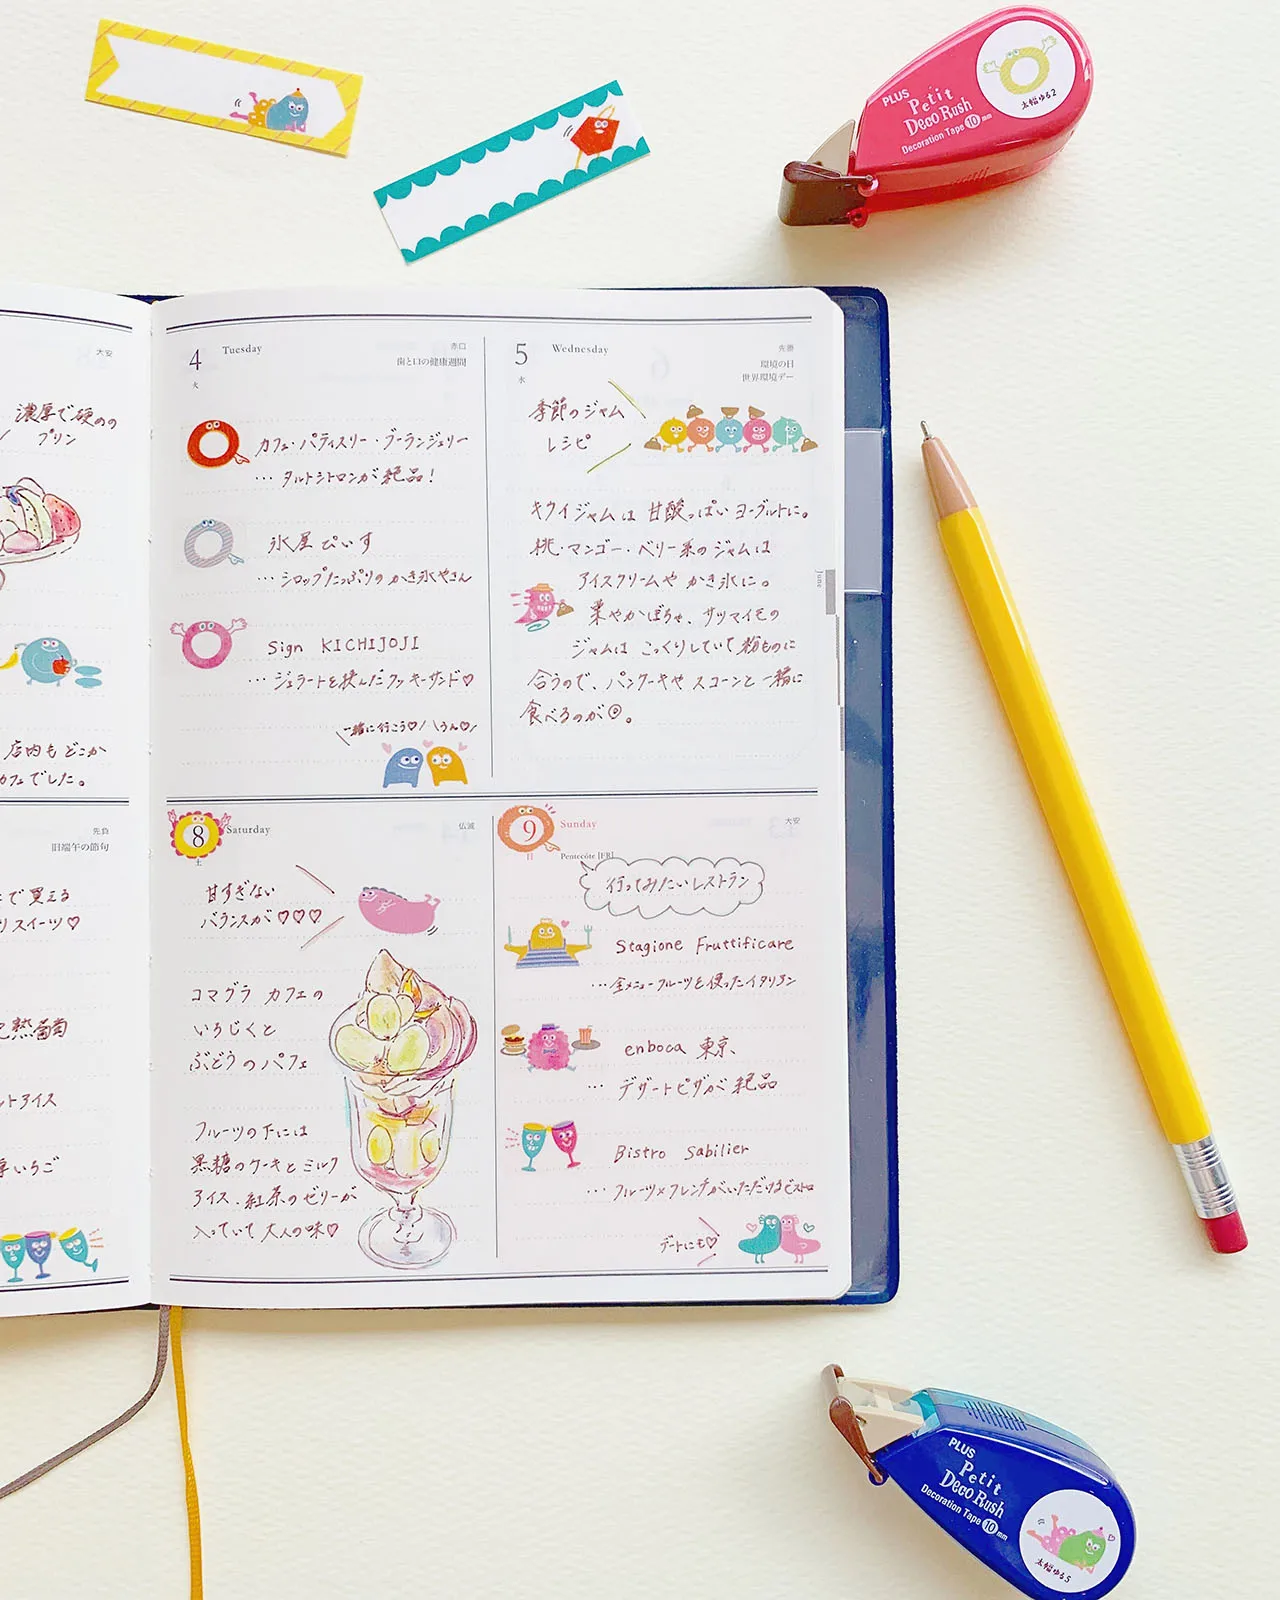 PLUS
Petit
Deco Rush
Decoration Tape 10 mm
太幅ゆる2
大安
濃厚で硬めの
プリン
店内もどこか
カフェでした。
4 Tuesday
赤口
火
歯と口の健康週間
カフェ・パティスリー・ブーランジェリー
… タルトシトロンが絶品！
氷屋 ぴぃす
… シロップたっぷりの かき氷やさん
Sign KICHIJOJI
… ジェラートを挟んだクッキーサンド♡
一緒に行こう♡ うん♡
5 Wednesday
先勝
水
環境の日
世界環境デー
季節のジャム
レシピ
キウイジャムは 甘酸っぱい ヨーグルトに。
桃・マンゴー・ベリー系のジャムは
アイスクリームや かき氷に。
栗やかぼちゃ、サツマイモの
ジャムは こっくりしていて 粉ものに
合うので、パンケーキや スコーンと 一緒に
食べるのが◎。
June
先負
旧端午の節句
で買える
スイーツ♡
熟葡萄
アイス
いちご
8 Saturday
仏滅
土
甘すぎない
バランスが ♡♡♡
コマグラ カフェの
いちじくと
ぶどうのパフェ
フルーツの下には
黒糖のケーキと ミルク
アイス、紅茶のゼリーが
入っていて 大人の味♡
9 Sunday
大安
日
Pentecôte [FR]
行ってみたいレストラン
Stagione Fruttificare
… 全メニューフルーツを使ったイタリアン
enboca 東京、
… デザートピザが 絶品
Bistro Sabilier
… フルーツ×フレンチがいただけるビストロ
デートにも♡
PLUS
Petit
Deco Rush
Decoration Tape 10 mm
太幅ゆる5